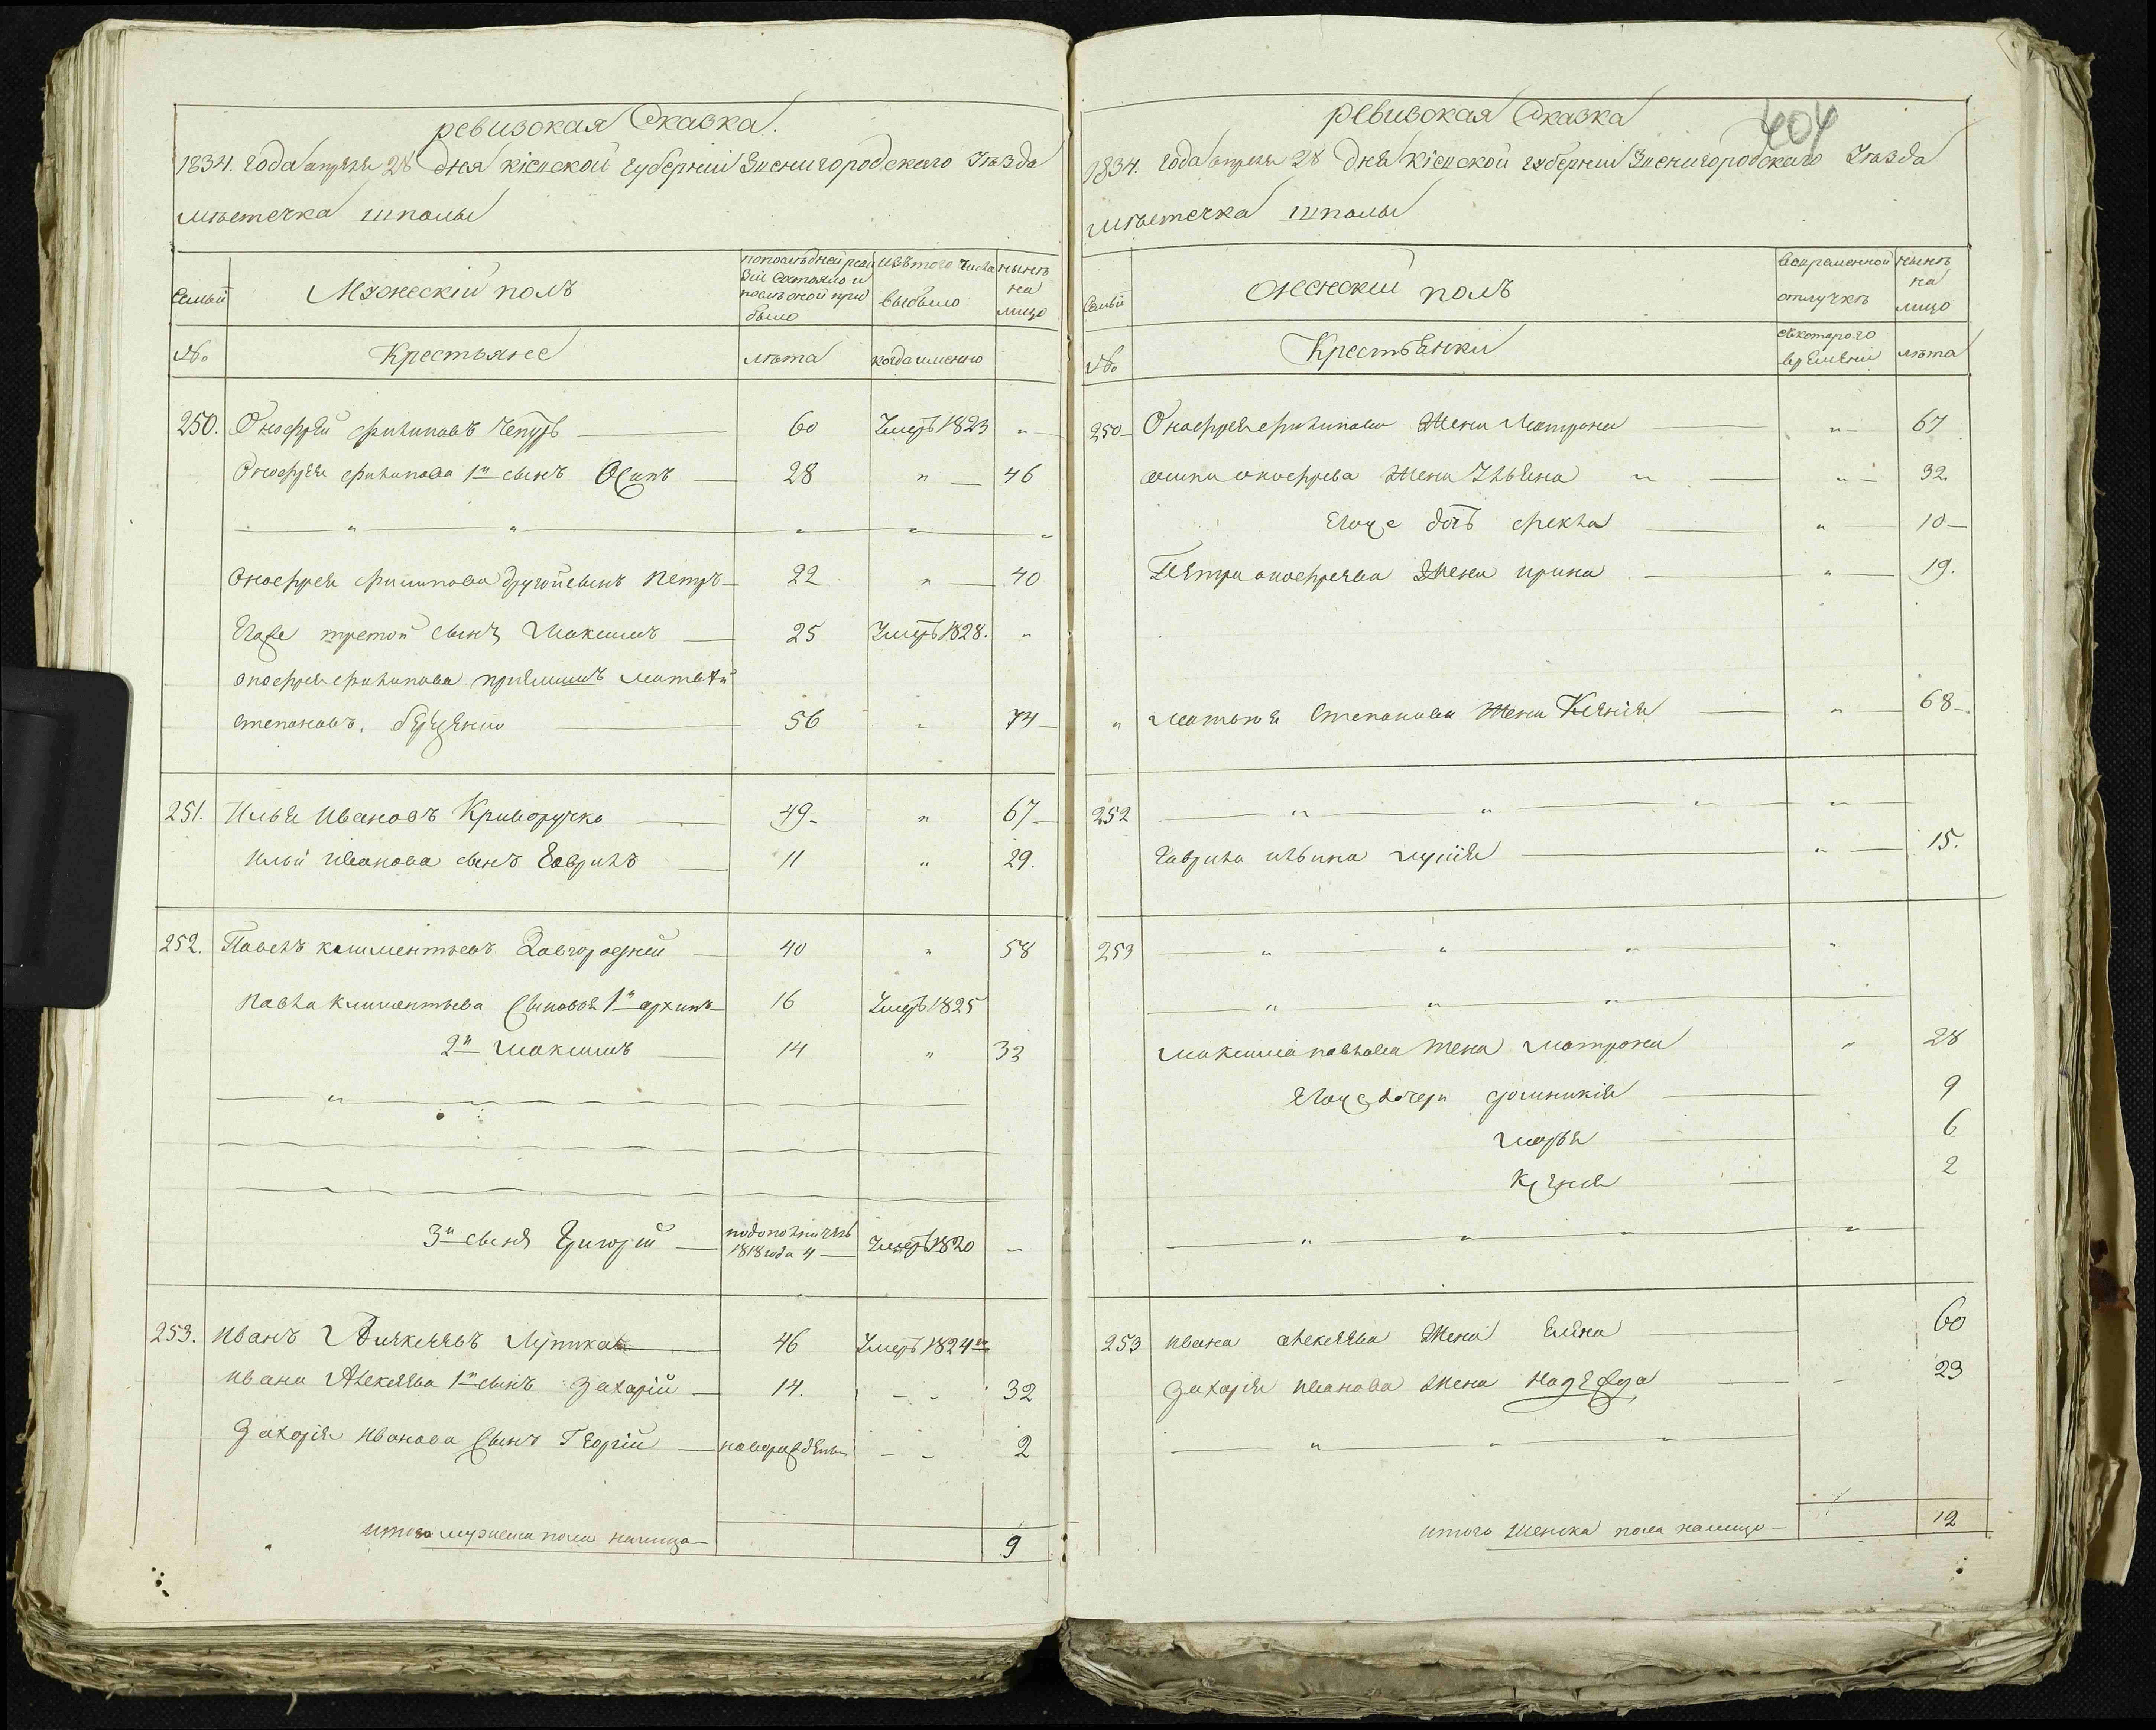 ревизская Сказка.
1834. года апреля 28 дня кіевской губерніи Звенигородского Уезда
местечка шполы
Семьи
Мужескій полъ
по последней реви
зіи состояло и
после оной при
было
изъ того числа
выбыло
нынѣ
на
лицо
№
Крестьяне
лѣта
когда именно
250. Онофрей филиповъ Чепуръ 60 Умеръ 1823 "
Онофрея филипова 1й сынъ Осипъ 28 " 46
" " " " "
Онофрея филипова другой сынъ Петръ 22 " 40
Егоже третой сынъ Максимъ 25 Умеръ 1828. "
Онофрея филипова приемышъ Матвѣй
степановъ. 56 " 74
251. Илья Ивановъ Криворучко 49 " 67
Ильи Иванова сынъ Гаврило 11 " 29.
252. Павелъ климентьевъ Завгородній 40 " 58
Павла климентьева сыновья 1й архипъ 16 Умеръ 1825
2й Максимъ 14 " 32
"
3й сынъ Григорій 1818 года 4 Умеръ 1820
253. Иванъ Алекѣевъ 46 Умеръ 1824го
Ивана Алексѣева 1й сынъ Захарій 14. 32
Захарія Иванова сынъ Георгій новорожденъ 2
итого мужеска пола налицо 9
404
ревизская Сказка
1834. года апреля 28 дня кіевской губерніи Звенигородского Уезда
местечка шполы
Семьи
Женскій полъ
во временной
отлучкѣ
нынѣ
на
лицо
№
Крестьянки
съ которого
времени
лѣта
250 Онофрея филипова Жена Матрона " 67
осипа онофрева Жена Ульяна " 32.
Егоже дочь фекла " 10
Петра онофреева Жена ирина " 19.
" Матвѣя Степанова Жена Ксенія " 68
252 " " " "
Гаврила ильина " 15.
253 " " " "
" " "
Максима павлова жена Матрона " 28
Егоже дочери домникія 9
марья 6
Ксенія 2
" " " "
253 ивана алексѣева Жена Елена 60
Захарія иванова Жена Надежда 23
" " "
итого женска пола налицо 12